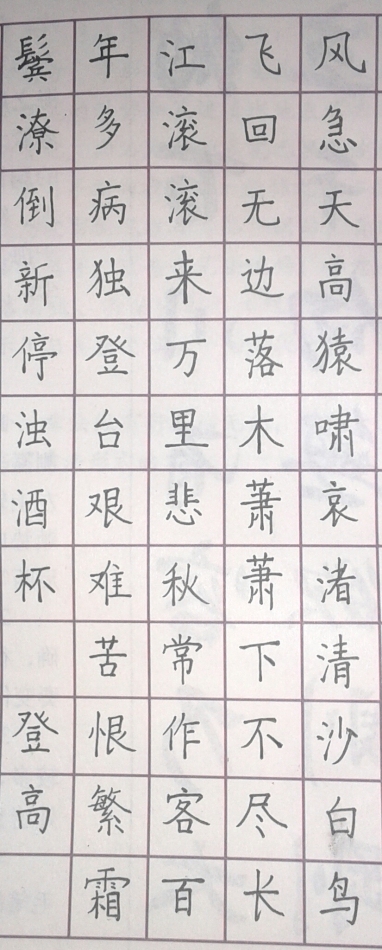 风急天高猿啸哀渚清沙白鸟
飞回无边落木萧萧下不尽长
江滚滚来万里悲秋常作客百
年多病独登台艰难苦恨繁霜
鬓潦倒新停浊酒杯 登高